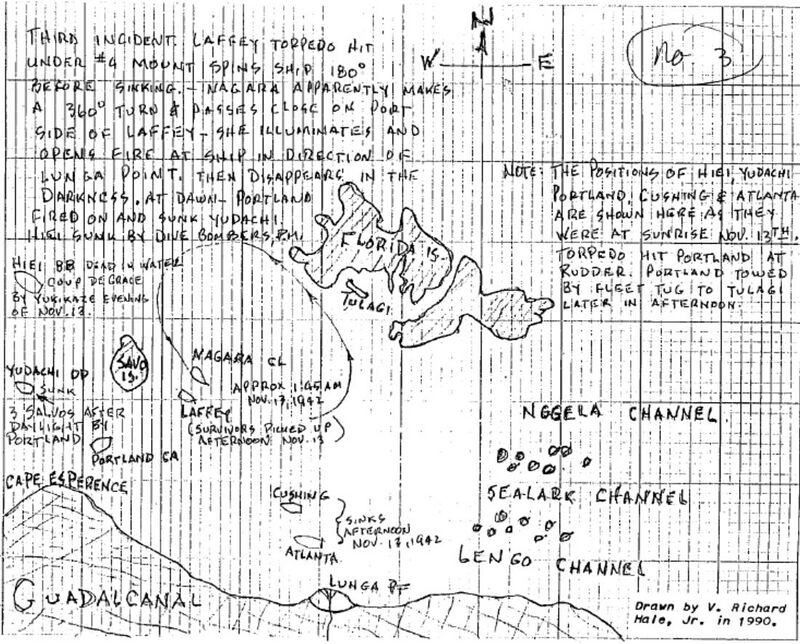 N
W E
No 3
THIRD INCIDENT. LAFFEY TORPEDO HIT
UNDER #4 MOUNT SPINS SHIP 180°
BEFORE SINKING. - NAGARA APPARENTLY MAKES
A 360° TURN & PASSES CLOSE ON PORT
SIDE OF LAFFEY - SHE ILLUMINATES AND
OPENS FIRE AT SHIP IN DIRECTION OF
LUNGA POINT. THEN DISAPPEARS IN THE
DARKNESS. AT DAWN - PORTLAND
FIRED ON AND SUNK YUDACHI.
HIEI SUNK BY DIVE BOMBERS, P.M.
NOTE: THE POSITIONS OF HIEI, YUDACHI
PORTLAND, CUSHING & ATLANTA
ARE SHOWN HERE AS THEY
WERE AT SUNRISE NOV. 13TH.
TORPEDO HIT PORTLAND AT
RUDDER. PORTLAND TOWED
BY FLEET TUG TO TULAGI
LATER IN AFTERNOON.
FLORIDA IS.
TULAGI
HIEI BB DEAD IN WATER
COUP DE GRACE
BY YUKIKAZE EVENING
OF NOV. 13.
SAVO
IS.
NAGARA CL
APPROX 1:45 AM
NOV. 13, 1942
LAFFEY
(SURVIVORS PICKED UP
AFTERNOON NOV. 13)
YUDACHI DD
SUNK
3 SALVOS AFTER
DAYLIGHT BY
PORTLAND
PORTLAND CA
CAPE ESPERENCE
NGGELA CHANNEL
SEALARK CHANNEL
LENGO CHANNEL
CUSHING
SINKS
AFTERNOON
NOV. 13, 1942
ATLANTA
LUNGA PT
GUADALCANAL
Drawn by V. Richard
Hale, Jr. in 1990.